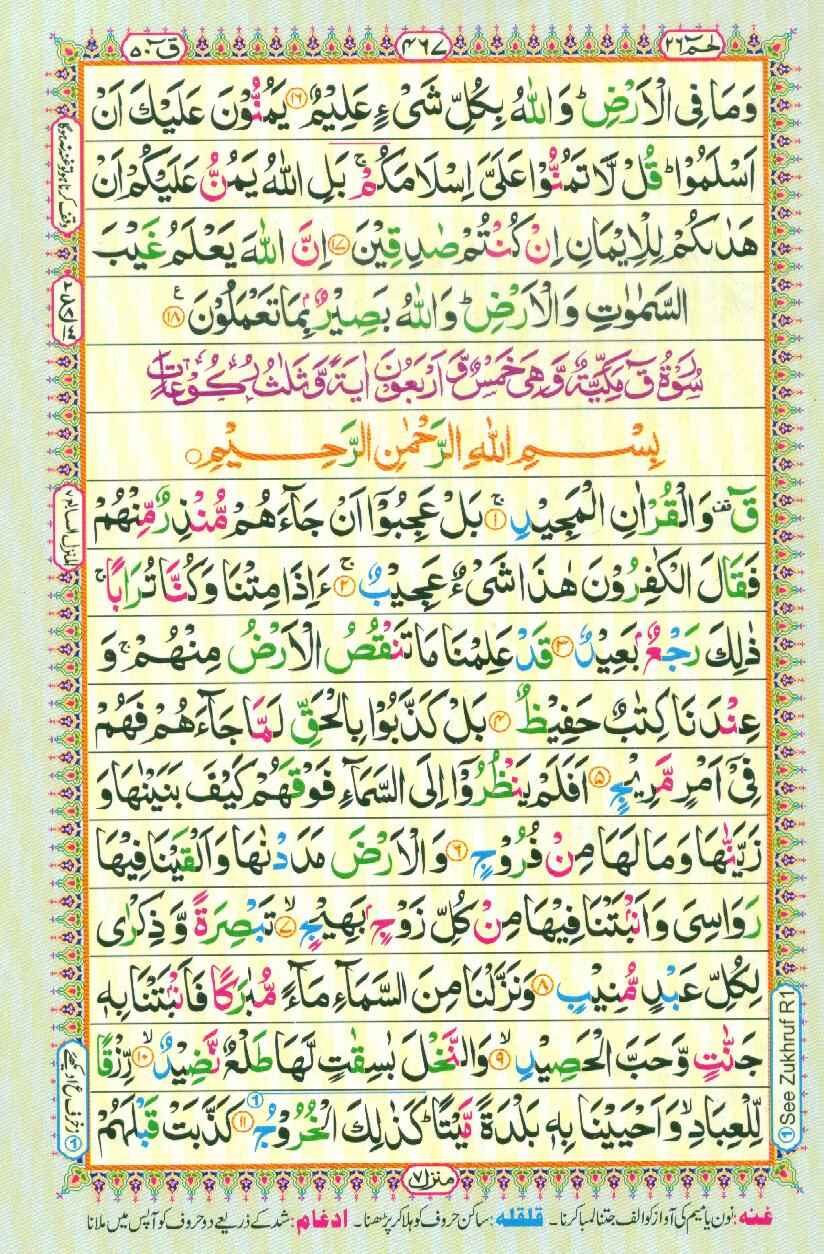 حٰمٓ ٢٦
٤٦٧
قٓ ٥٠
وَمَا فِی الۡاَرۡضِ ؕ وَاللّٰهُ بِكُلِّ شَیۡءٍ عَلِیۡمٌ ﴿۱۶﴾ یَمُنُّوۡنَ عَلَیۡكَ اَنۡ
اَسۡلَمُوۡا ؕ قُلۡ لَّا تَمُنُّوۡا عَلَیَّ اِسۡلَامَكُمۡ ۚ بَلِ اللّٰهُ یَمُنُّ عَلَیۡكُمۡ اَنۡ
هَدٰىكُمۡ لِلۡاِیۡمَانِ اِنۡ كُنۡتُمۡ صٰدِقِیۡنَ ﴿۱۷﴾ اِنَّ اللّٰهَ یَعۡلَمُ غَیۡبَ
السَّمٰوٰتِ وَالۡاَرۡضِ ؕ وَاللّٰهُ بَصِیۡرٌۢ بِمَا تَعۡمَلُوۡنَ ﴿۱۸﴾ ع
سُوۡرَةُ قٓ مَكِّیَّةٌ وَّهِیَ خَمۡسٌ وَّاَرۡبَعُوۡنَ اٰیَةً وَّثَلٰثُ رُكُوۡعَاتٍ
بِسۡمِ اللّٰهِ الرَّحۡمٰنِ الرَّحِیۡمِ
قٓ ۟ۚ وَالۡقُرۡاٰنِ الۡمَجِیۡدِ ﴿۱﴾ۚ بَلۡ عَجِبُوۡۤا اَنۡ جَآءَهُمۡ مُّنۡذِرٌ مِّنۡهُمۡ
فَقَالَ الۡكٰفِرُوۡنَ هٰذَا شَیۡءٌ عَجِیۡبٌ ﴿۲﴾ۚ ءَاِذَا مِتۡنَا وَكُنَّا تُرَابًا ۚ
ذٰلِكَ رَجۡعٌۢ بَعِیۡدٌ ﴿۳﴾ قَدۡ عَلِمۡنَا مَا تَنۡقُصُ الۡاَرۡضُ مِنۡهُمۡ ۚ وَ
عِنۡدَنَا كِتٰبٌ حَفِیۡظٌ ﴿۴﴾ بَلۡ كَذَّبُوۡا بِالۡحَقِّ لَمَّا جَآءَهُمۡ فَهُمۡ
فِیۡۤ اَمۡرٍ مَّرِیۡجٍ ﴿۵﴾ اَفَلَمۡ یَنۡظُرُوۡۤا اِلَی السَّمَآءِ فَوۡقَهُمۡ كَیۡفَ بَنَیۡنٰهَا وَ
زَیَّنّٰهَا وَمَا لَهَا مِنۡ فُرُوۡجٍ ﴿۶﴾ وَالۡاَرۡضَ مَدَدۡنٰهَا وَاَلۡقَیۡنَا فِیۡهَا
رَوَاسِیَ وَاَنۡۢبَتۡنَا فِیۡهَا مِنۡ كُلِّ زَوۡجٍۭ بَهِیۡجٍ ﴿۷﴾ۙ تَبۡصِرَةً وَّذِكۡرٰی
لِكُلِّ عَبۡدٍ مُّنِیۡبٍ ﴿۸﴾ وَنَزَّلۡنَا مِنَ السَّمَآءِ مَآءً مُّبٰرَكًا فَاَنۡۢبَتۡنَا بِهٖ
جَنّٰتٍ وَّحَبَّ الۡحَصِیۡدِ ﴿۹﴾ۙ وَالنَّخۡلَ بٰسِقٰتٍ لَّهَا طَلۡعٌ نَّضِیۡدٌ ﴿۱۰﴾ۙ رِّزۡقًا
لِّلۡعِبَادِ ۙ وَاَحۡیَیۡنَا بِهٖ بَلۡدَةً مَّیۡتًا ؕ كَذٰلِكَ الۡخُرُوۡجُ ① ﴿۱۱﴾ كَذَّبَتۡ قَبۡلَهُمۡ
① See Zukhruf R1
منزل ٧
غنه: نون یا میم کی آواز کو الف جتنا لمبا کرنا۔ قلقله: ساکن حروف کو ہلا کر پڑھنا۔ ادغام: شد کے ذریعے دو حروف کو آپس میں ملانا